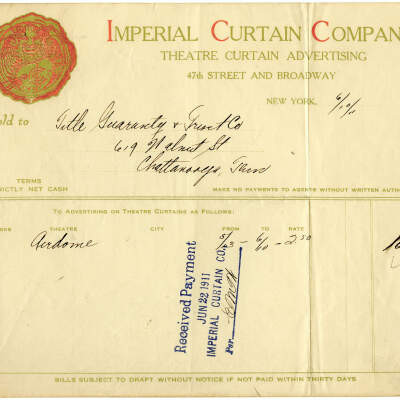 IMPERIAL CURTAIN COMPAN
THEATRE CURTAIN ADVERTISING
47th STREET AND BROADWAY
NEW YORK, 6/10/11
old to Title Guaranty & Trust Co
619 Walnut St
Chattanooga, Tenn
TERMS
RICTLY NET CASH
MAKE NO PAYMENTS TO AGENTS WITHOUT WRITTEN AUTHO
To Advertising on Theatre Curtains as Follows:
THEATRE CITY FROM TO RATE
Airdome 5/23 - 6/10 - 2.50
Received Payment
JUN 22 1911
IMPERIAL CURTAIN CO.
Per
BILLS SUBJECT TO DRAFT WITHOUT NOTICE IF NOT PAID WITHIN THIRTY DAYS